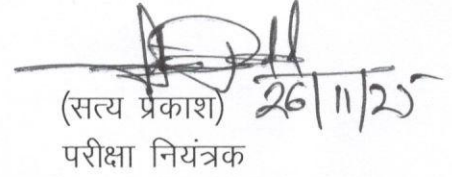 (सत्य प्रकाश) 26/11/25
परीक्षा नियंत्रक